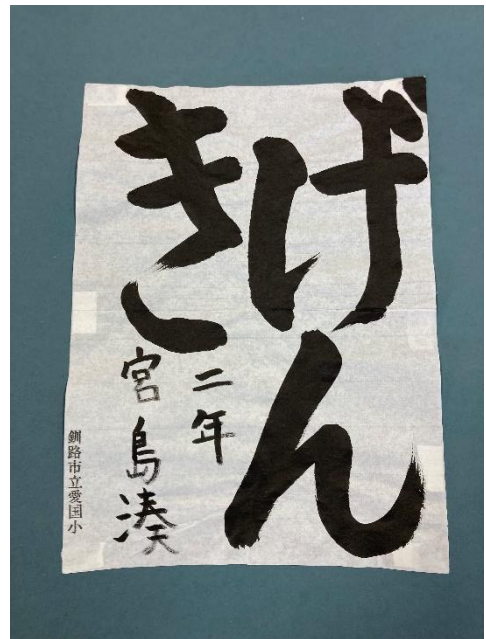 げん
き
二年
宮島湊
釧路市立愛国小